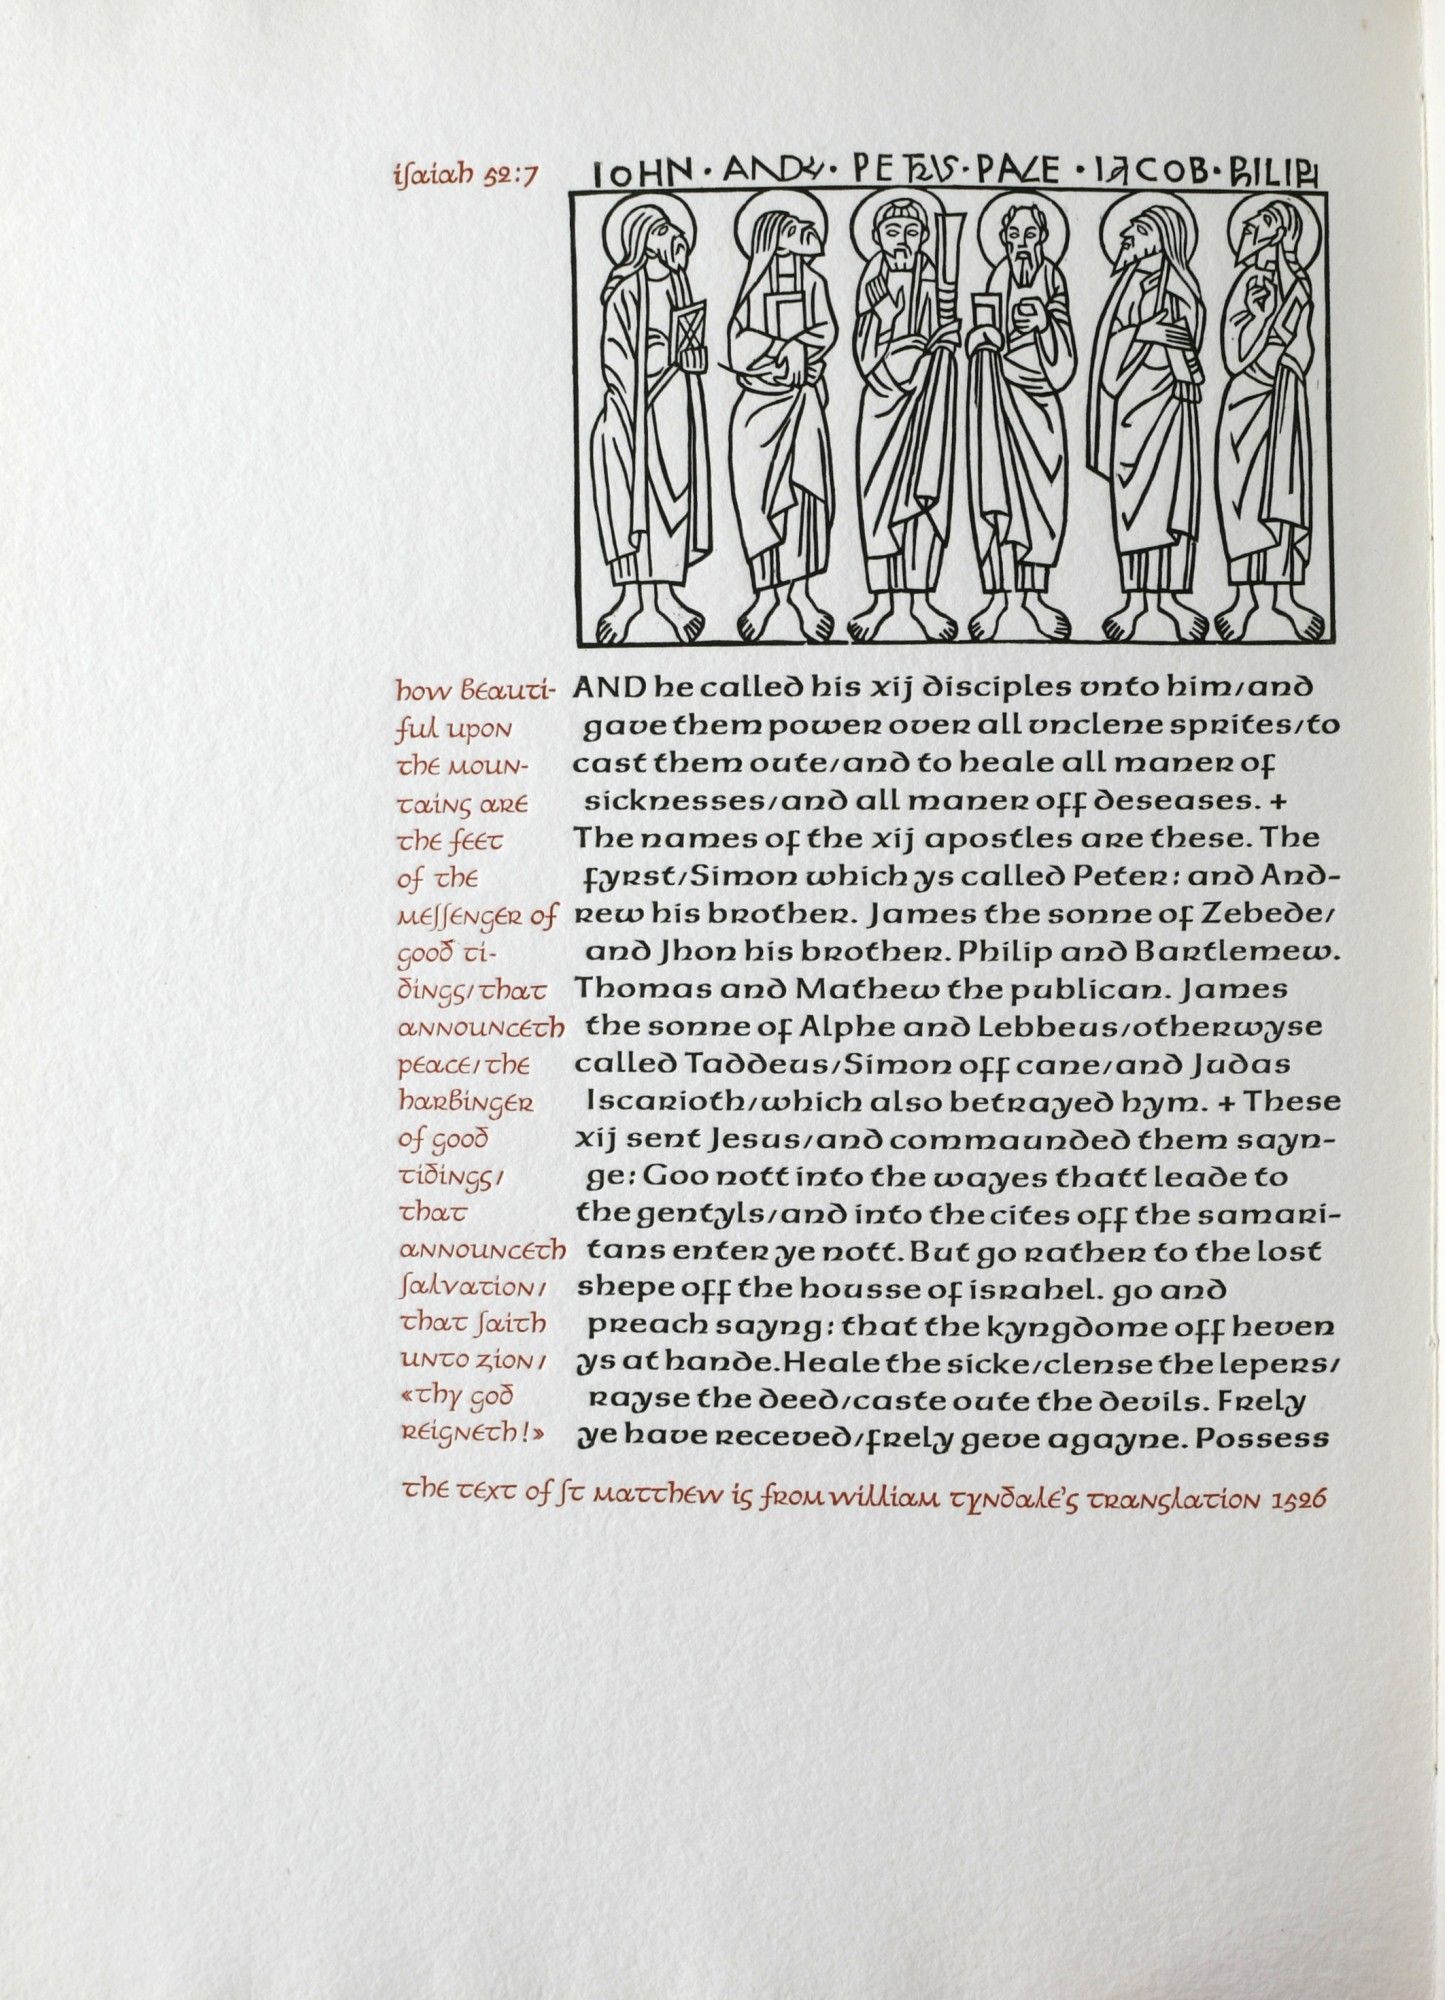 isaiah 52:7
IOHN · ANDR · PETRVS · PALE · IACOB · PILIPI
how beauti-
ful upon
the moun-
tains are
the feet
of the
messenger of
good ti-
dings/that
announceth
peace/the
harbinger
of good
tidings/
that
announceth
salvation/
that saith
unto zion/
«thy god
reigneth!»
AND he called his xij disciples vnto him/and
gave them power over all vnclene sprites/to
cast them oute/and to heale all maner of
sicknesses/and all maner off deseases. +
The names of the xij apostles are these. The
fyrst/Simon which ys called Peter: and And-
rew his brother. James the sonne of Zebede/
and Jhon his brother. Philip and Bartlemew.
Thomas and Mathew the publican. James
the sonne of Alphe and Lebbeus/otherwyse
called Taddeus/Simon off cane/and Judas
Iscarioth/which also betrayed hym. + These
xij sent Jesus/and commaunded them sayn-
ge: Goo nott into the wayes thatt leade to
the gentyls/and into the cites off the samari-
tans enter ye nott. But go rather to the lost
shepe off the housse of israhel. go and
preach sayng: that the kyngdome off heven
ys at hande. Heale the sicke/clense the lepers/
rayse the deed/caste oute the devils. Frely
ye have receved/frely geve agayne. Possess
the text of st matthew is from william tyndale's translation 1526